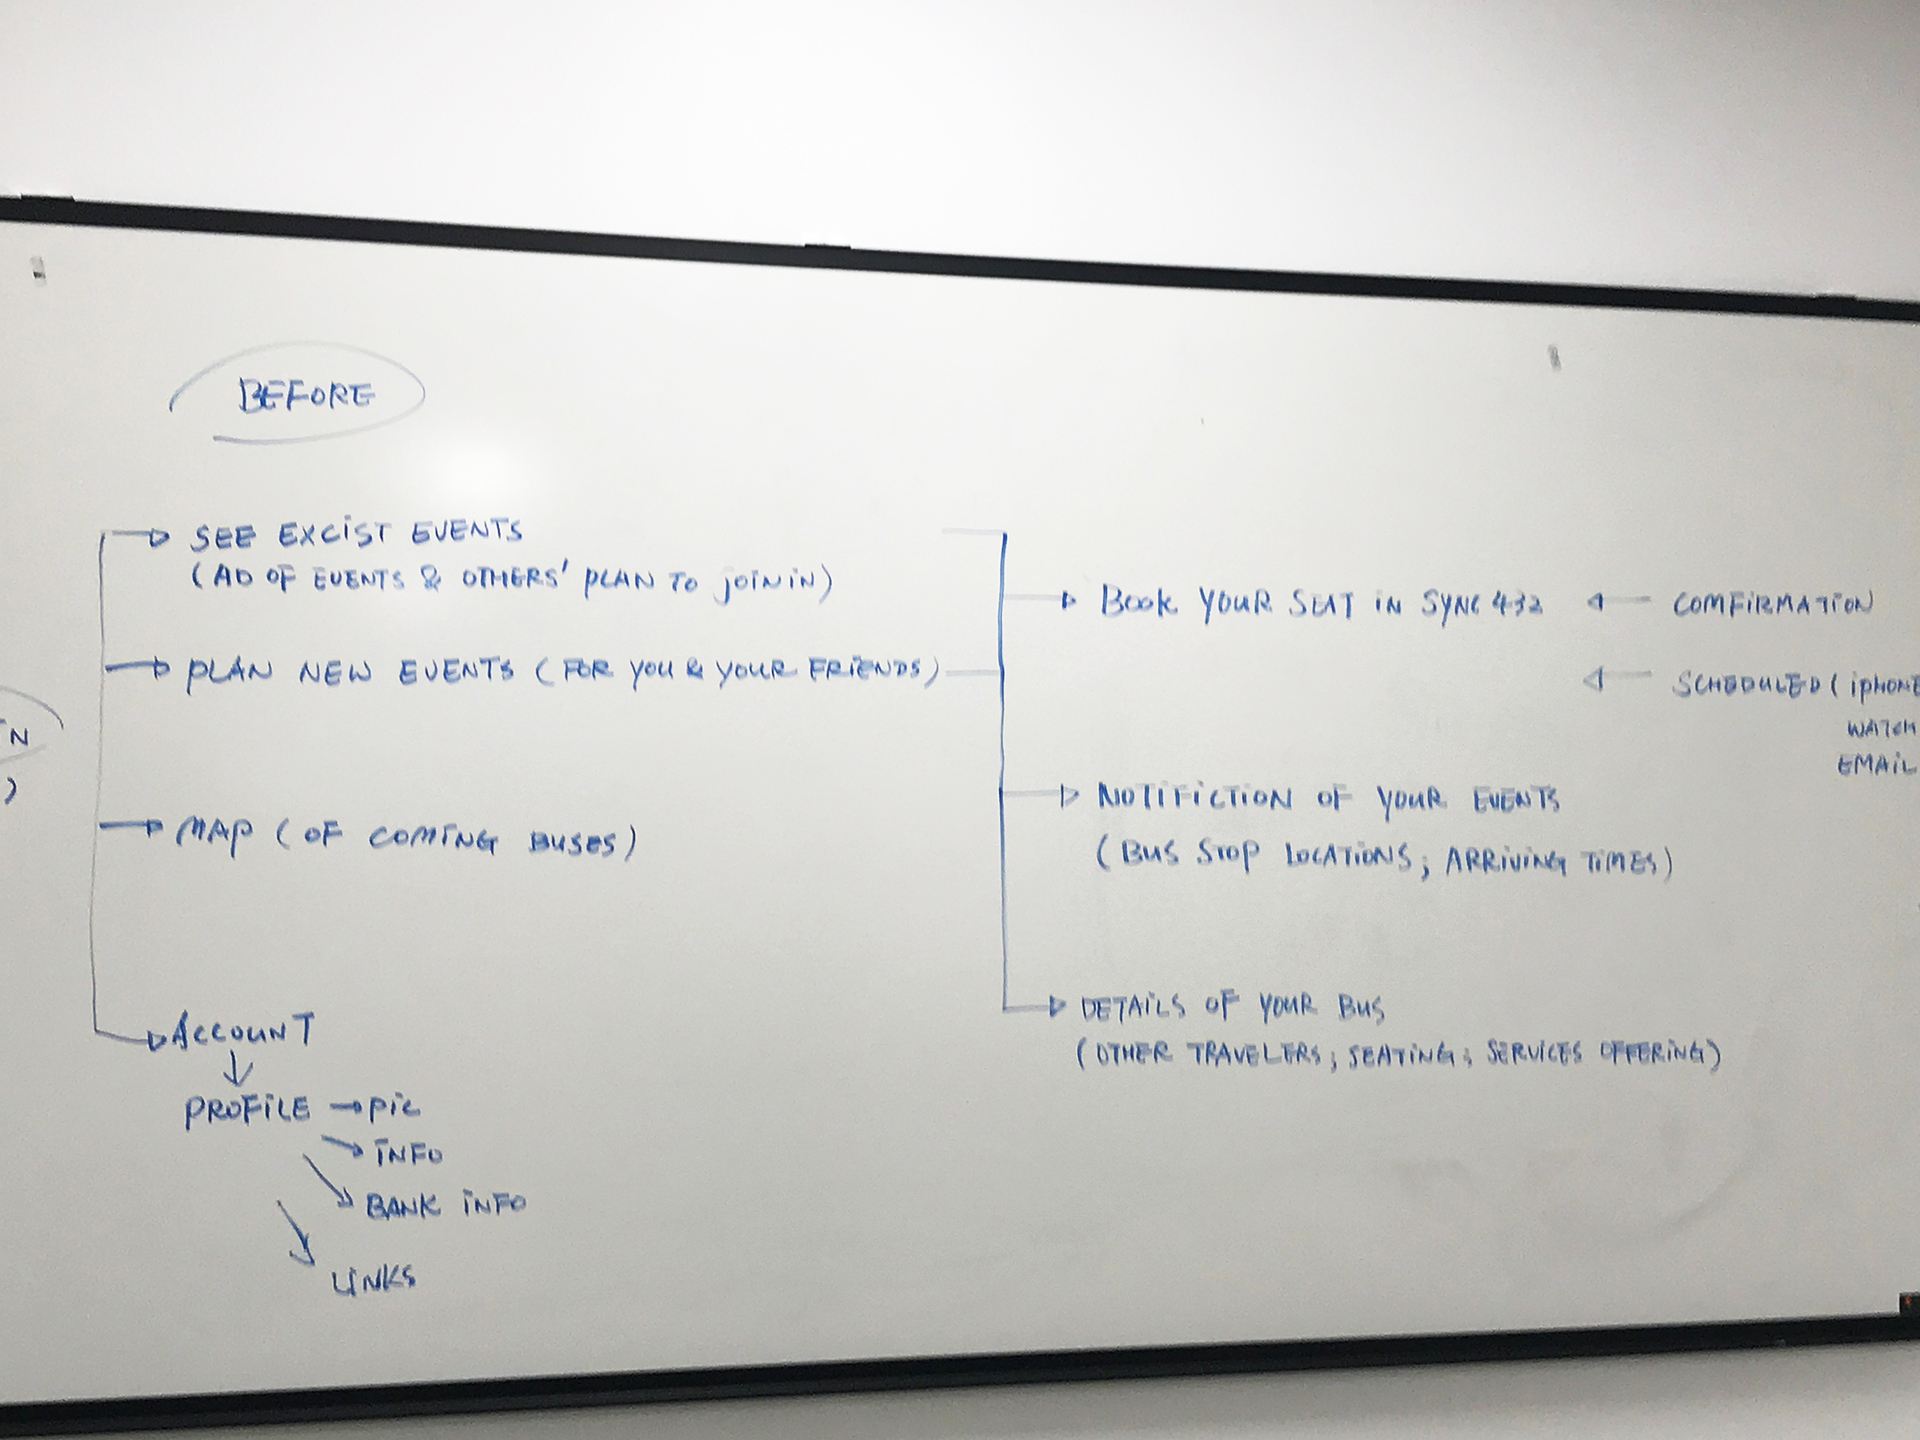 BEFORE
SEE EXCIST EVENTS
(AD OF EVENTS & OTHERS' PLAN TO JOIN IN)
PLAN NEW EVENTS (FOR YOU & YOUR FRIENDS)
MAP (OF COMING BUSES)
ACCOUNT
PROFILE → PIC
INFO
BANK INFO
LINKS
BOOK YOUR SEAT IN SYNC 432
COMFIRMATION
SCHEDULED (IPHONE
WATCH
EMAIL
NOTIFICTION OF YOUR EVENTS
(BUS STOP LOCATIONS; ARRIVING TIMES)
DETAILS OF YOUR BUS
(OTHER TRAVELERS; SEATING; SERVICES OFFERING)